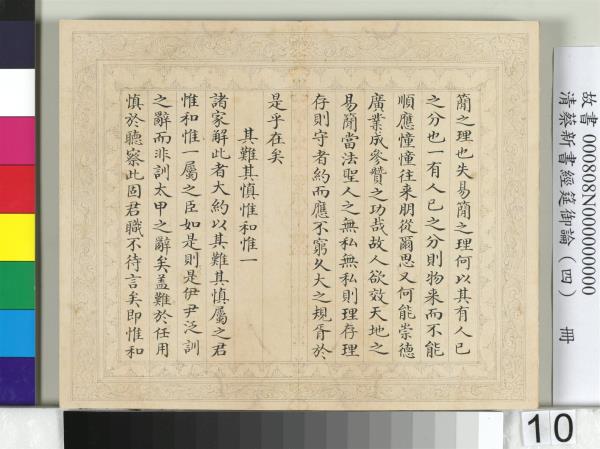 簡之理也失易簡之理何以其有人已
之分也一有人已之分則物来而不能
順應憧憧往来朋從爾思又何能崇德
廣業成參贊之功哉故人欲效天地之
易簡當法聖人之無私無私則理存理
存則守者約而應不窮久大之規胥於
是乎在矣
其難其慎惟和惟一
諸家解此者大約以其難其慎屬之君
惟和惟一屬之臣如是則是伊尹泛訓
之辭而非訓太甲之辭矣蓋難於任用
慎於聽察此固君職不待言矣即惟和
故書 000808N000000000
清蔡新書經筵御論(四) 冊
10